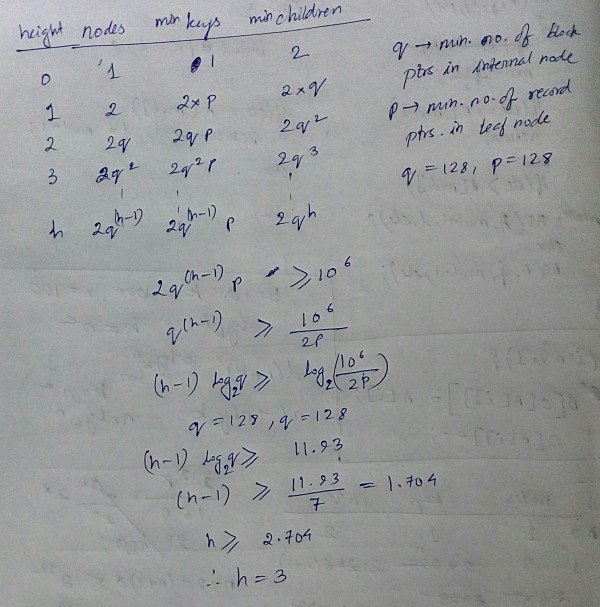 height nodes min keys min children
0 1 1 2
1 2 2×P 2×q
2 2q 2qP 2q²
3 2q² 2q²P 2q³
h 2q^(h-1) 2q^(h-1) P 2q^h
q → min. no. of block
ptrs in internal node
P → min. no. of record
ptrs. in leaf node
q = 128, P = 128
2q^(h-1) P ≥ 10^6
q^(h-1) ≥ 10^6 / 2P
(h-1) log₂q ≥ log₂(10^6 / 2P)
q = 128, q = 128
(h-1) log₂q ≥ 11.93
(h-1) ≥ 11.93 / 7 = 1.704
h ≥ 2.704
∴ h = 3